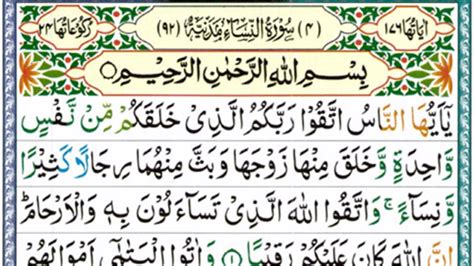 اٰیَاتُهَا ۱۷۶ (۴) سُوْرَةُ النِّسَآءِ مَدَنِیَّةٌ (۹۲) رُكُوْعَاتُهَا ۲۴
بِسْمِ اللهِ الرَّحْمٰنِ الرَّحِیْمِ
یٰۤاَیُّهَا النَّاسُ اتَّقُوْا رَبَّكُمُ الَّذِیْ خَلَقَكُمْ مِّنْ نَّفْسٍ
وَّاحِدَةٍ وَّخَلَقَ مِنْهَا زَوْجَهَا وَبَثَّ مِنْهُمَا رِجَالًا كَثِیْرًا
وَّنِسَآءً ۚ وَاتَّقُوا اللهَ الَّذِیْ تَسَآءَلُوْنَ بِهٖ وَالْاَرْحَامَ ؕ
اِنَّ اللهَ كَانَ عَلَیْكُمْ رَقِیْبًا ۱ وَاٰتُوا الْیَتٰمٰۤی اَمْوَالَهُمْ